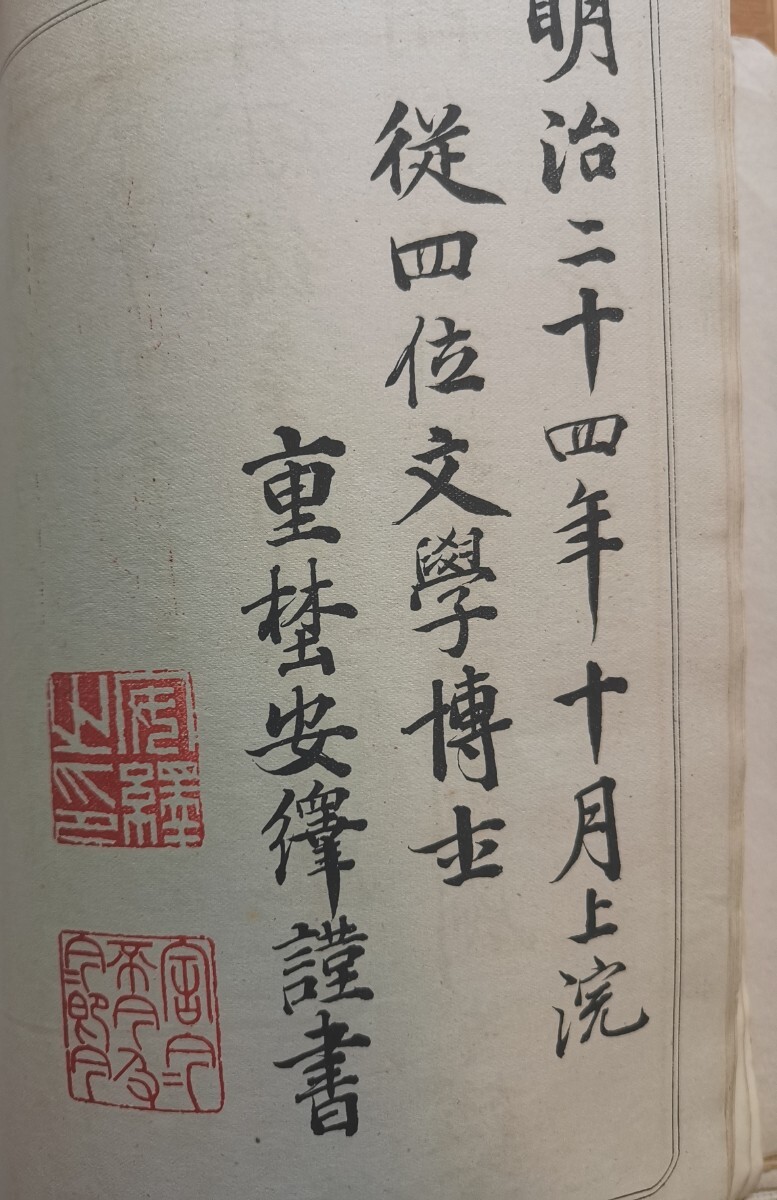 明治二十四年十月上浣
從四位文學博士
重埜安繹謹書
安繹之印